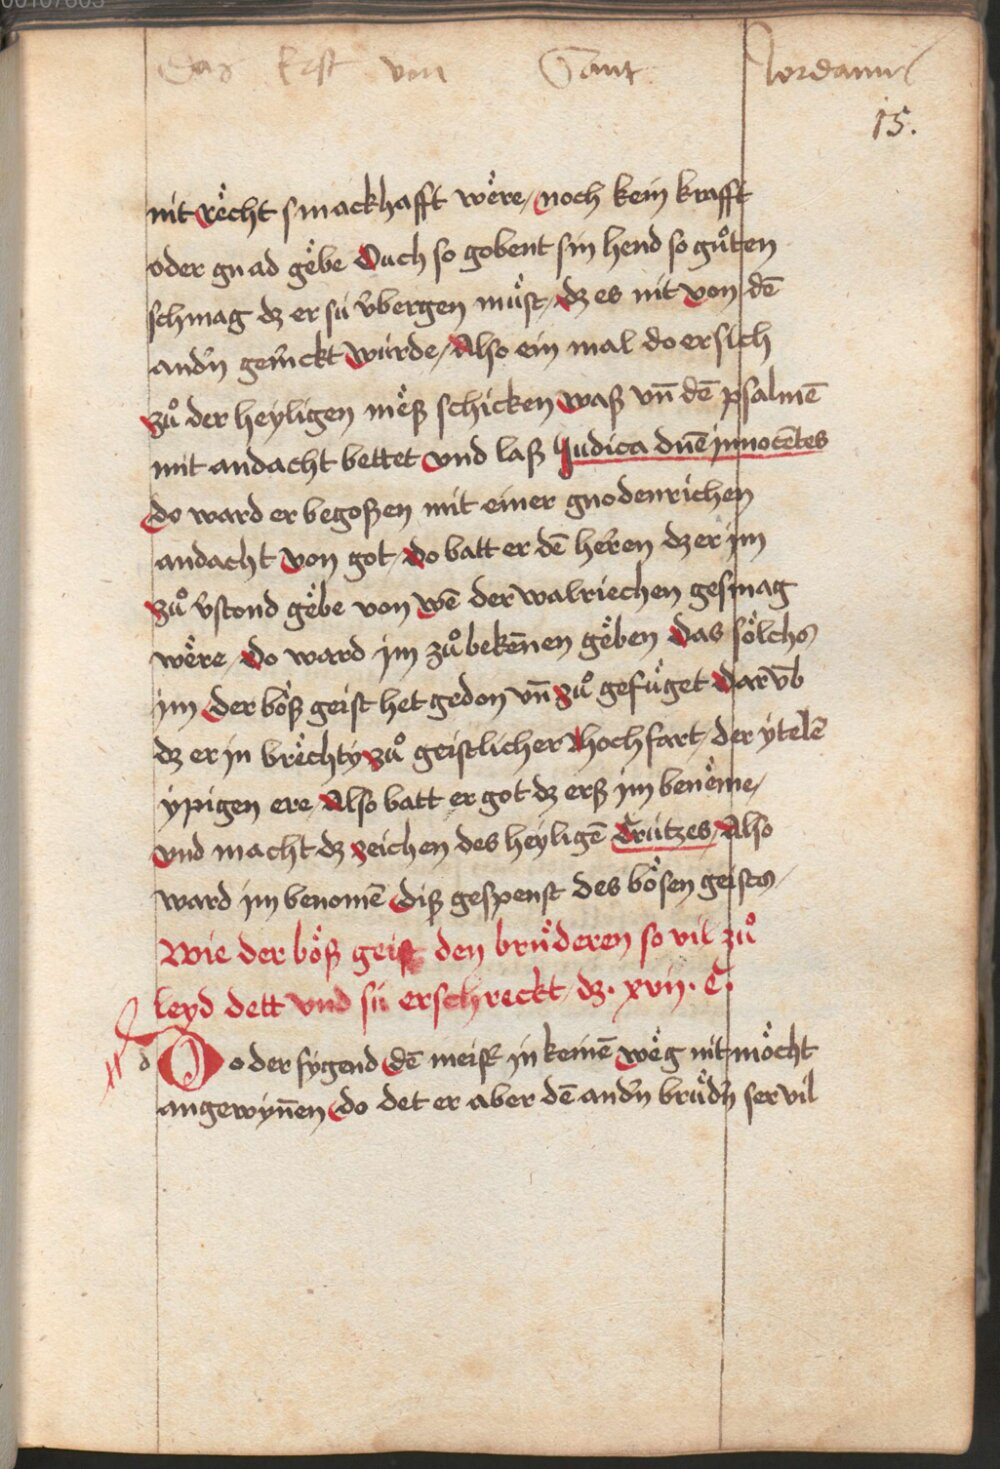 00107603
Das Erst von Sant Jordanus
15.
nit rëcht smackhafft wëre, noch kein krafft
oder gnad gëbe Ouch so gobent sin hend so gůten
schmag dz er sü v̄bergen müst, dz es nit von dē
andn̄ gemckt wurde, Also ein mal do er sich
zů der heyligen mëß schicken waß vn̄ dē psalmē
mit andacht bettet vnd laß Judica dn̄e innocētes
do ward er begoßen mit einer gnodenrichen
andacht von got, do batt er dē herren dz er im
zů v̄stond gëbe von wē der walriechen gesmag
wëre, do ward jm zů bekēnen gëben das sölchs
jm der böß geist het gedon vn̄ zů gefüget darv̄b
dz er jn brëchty zů geistlicher hochfart, der ytelē
ypigen ere, Also batt er got dz erß jm benëme,
vnd macht dz zeichen des heyligē Crützes, Also
ward jm benomē diß gespenst des bösen geistes,
Wie der böß geist den brüderen so vil zů
leyd dett vnd sü erschreckt, dz. xvij. C.
d Do der fygend dē meister jn keinē wëg nit möcht
angewyn̄en do det er aber dē andn̄ brüdn̄ ser vil